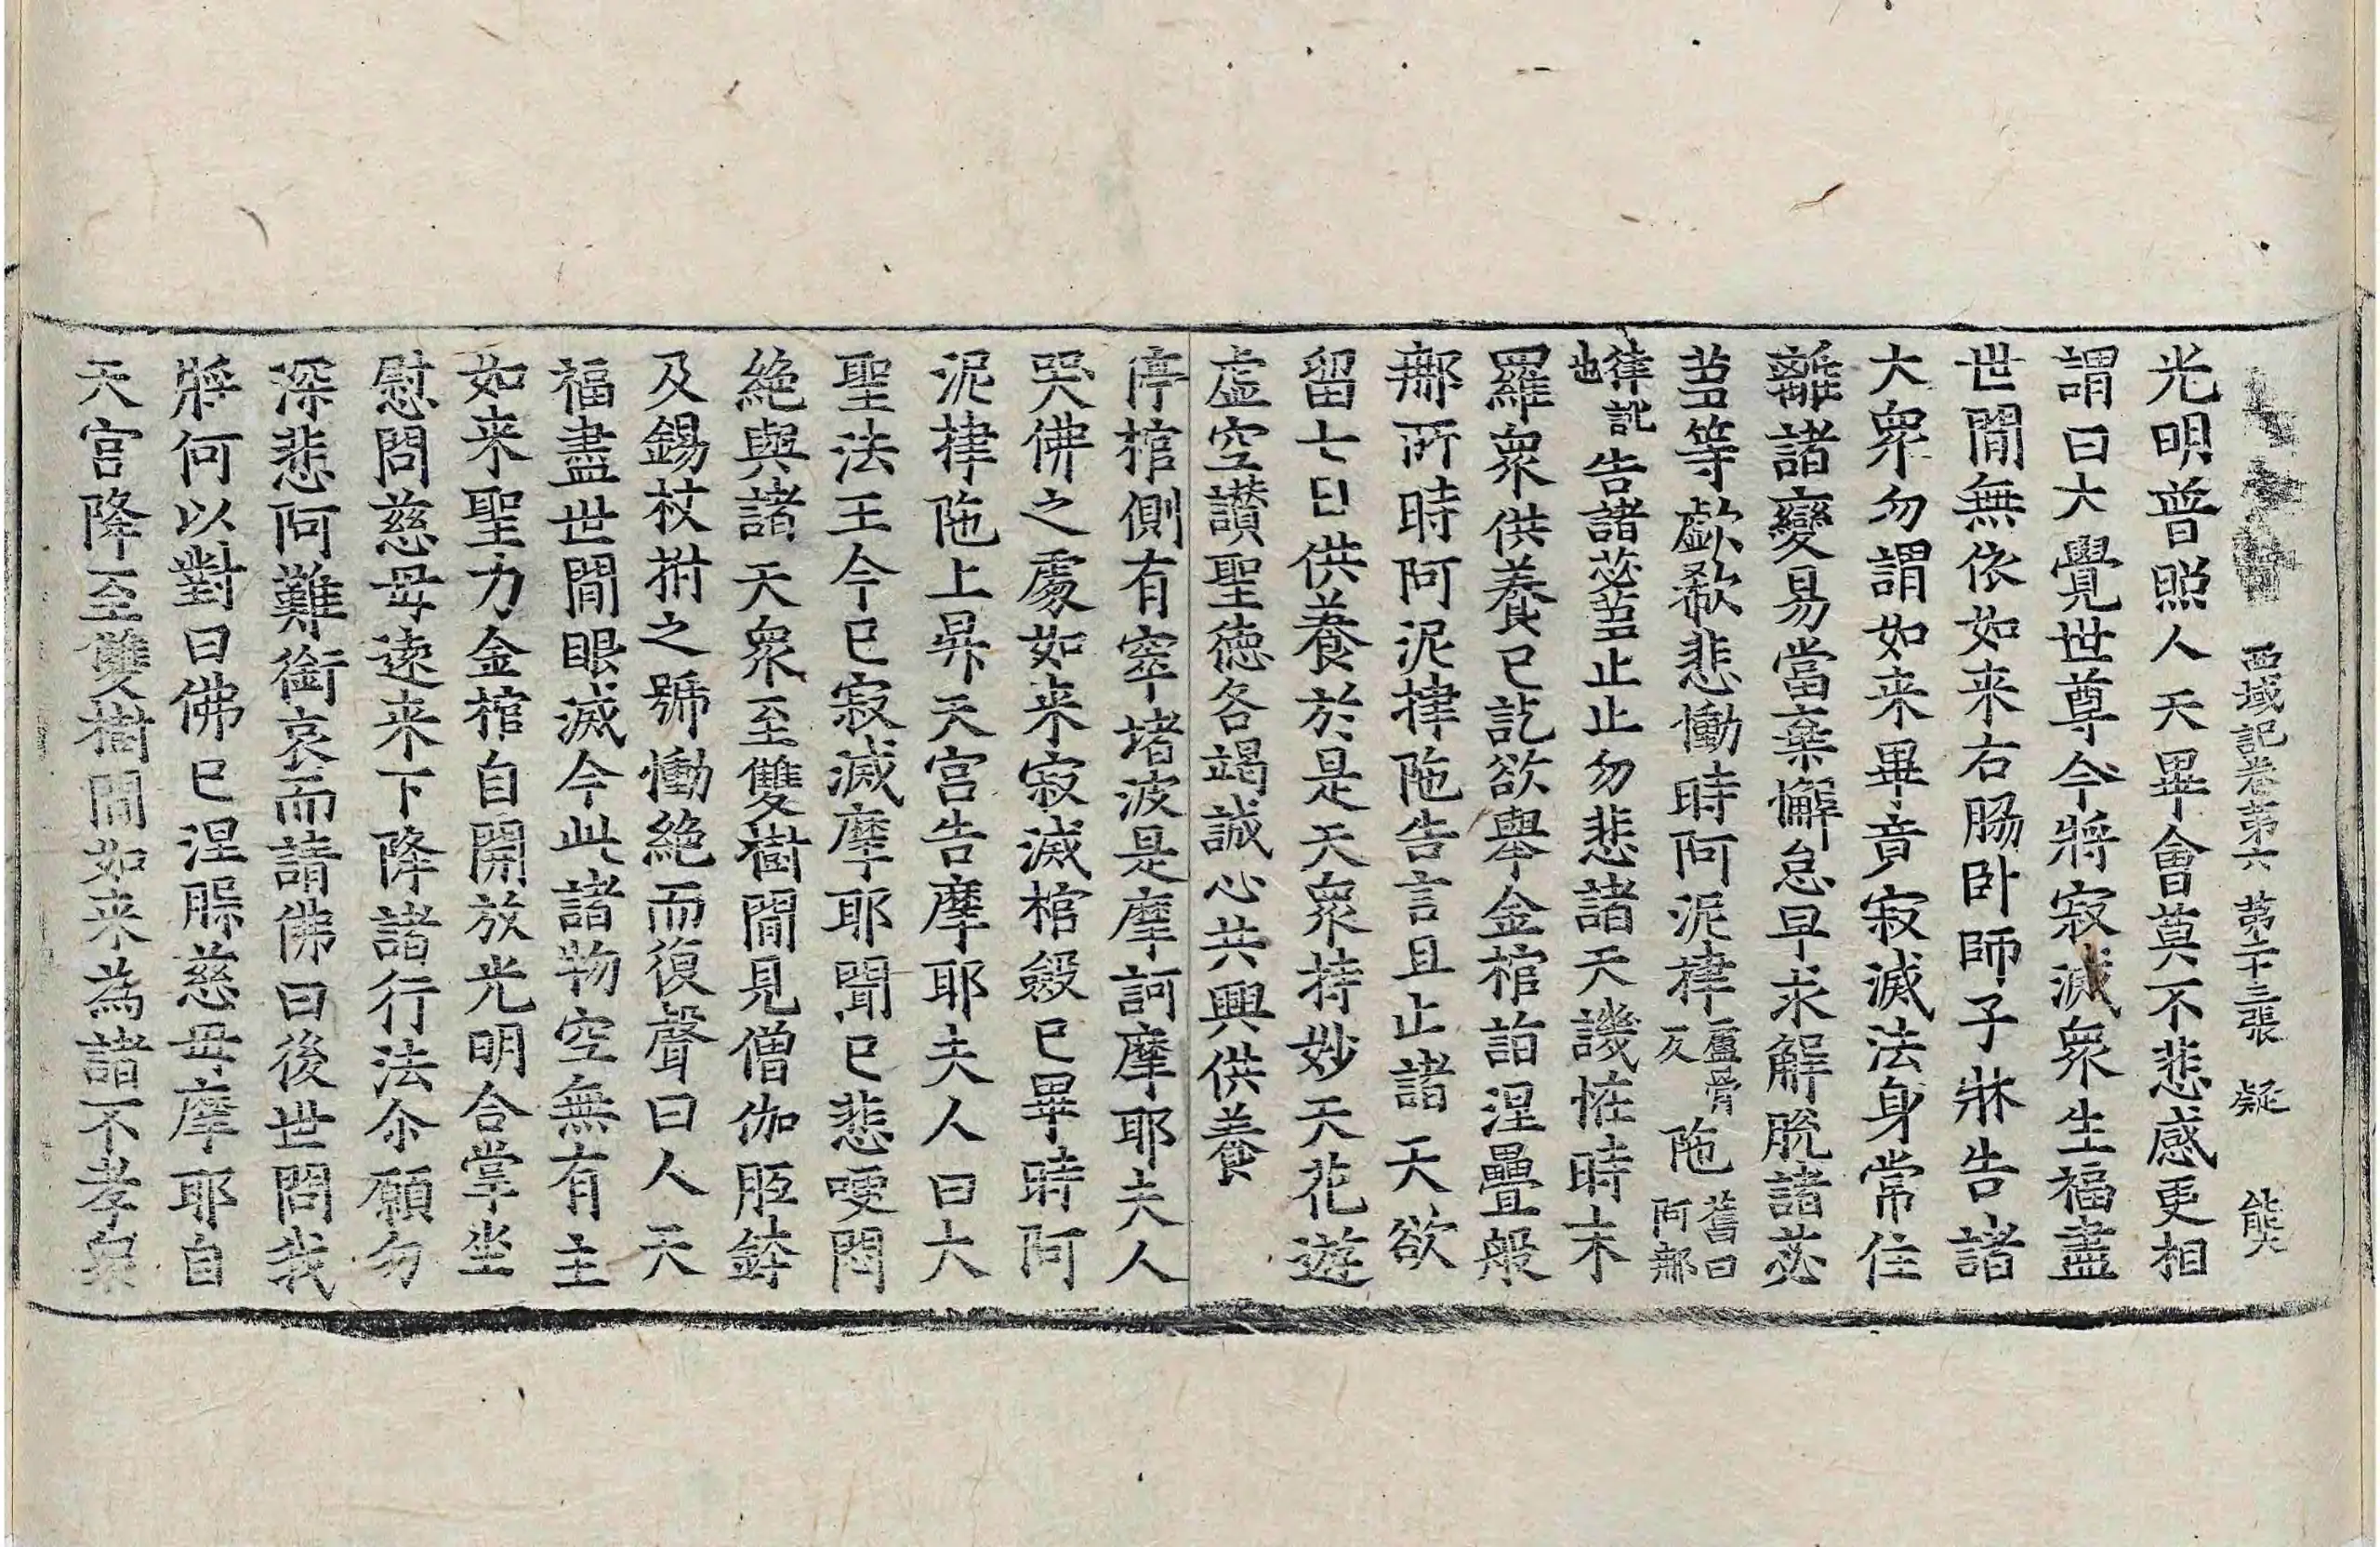 西域記卷第六 第二十三張 凝 能
光明普照人天畢會莫不悲感更相
謂曰大覺世尊今將寂滅衆生福盡
世閒無依如来右肠卧師子牀告諸
大衆勿謂如来畢竟寂滅法身常住
離諸變易當棄懈怠早求解脫諸苾
蒭等歔欷悲慟時阿泥𢯱盧骨反陁舊曰阿那
律訛也告諸苾蒭止止勿悲諸天譏恠時末
羅衆供養已訖欲舉金棺詣涅疊般
那所時阿泥𢯱陁告言且止諸天欲
留七日供養於是天衆持妙天花遊
虛空讃聖德各竭誠心共興供養
停棺側有窣堵波是摩訶摩耶夫人
哭佛之處如来寂滅棺殮已畢時阿
泥𢯱陁上昇天宮告摩耶夫人曰大
聖法王今已寂滅摩耶聞已悲哽悶
絶與諸天衆至雙樹閒見僧伽胝鉢
及錫杖拊之號慟絶而復聲曰人天
福盡世閒眼滅今此諸物空無有主
如来聖力金棺自開放光明合掌坐
慰問慈母遠来下降諸行法尒願勿
深悲阿難銜哀而請佛曰後世問我
將何以對曰佛已涅槃慈母摩耶自
天宮降至雙樹閒如来為諸不孝衆